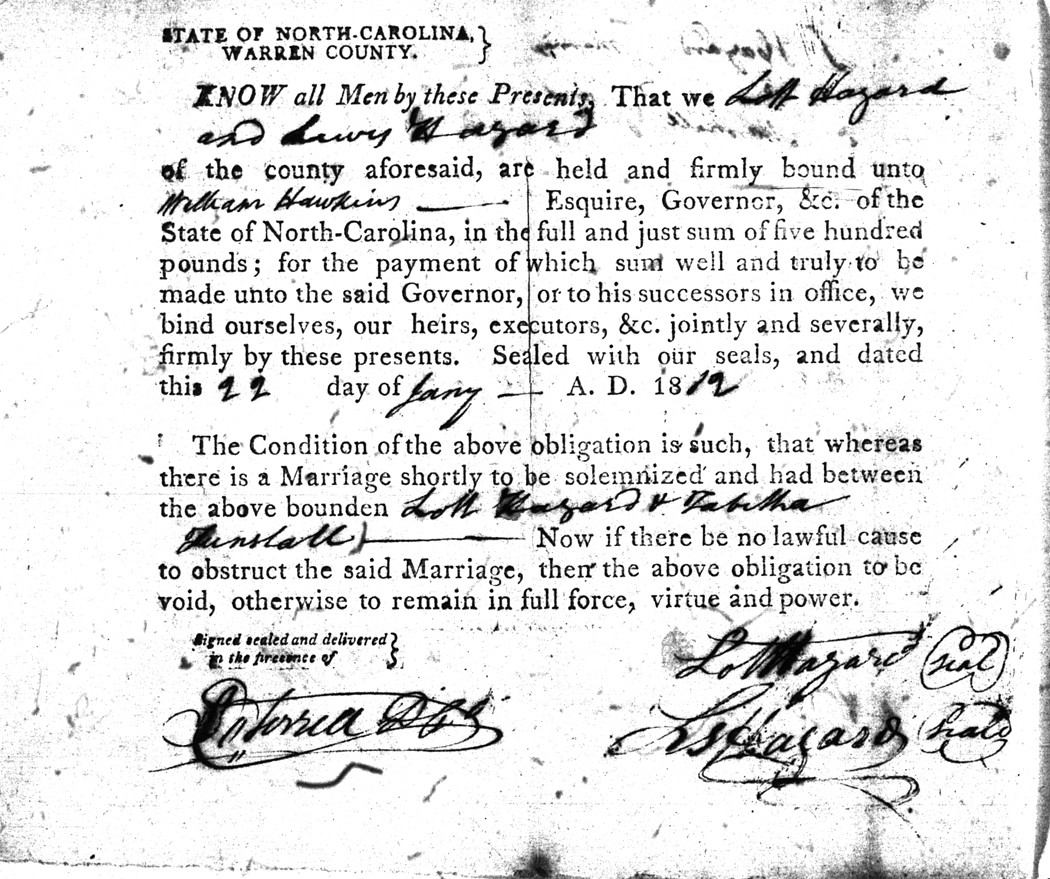 STATE OF NORTH-CAROLINA,
WARREN COUNTY.
KNOW all Men by these Presents, That we Lott Hazard
and Lewis Hazard
of the county aforesaid, are held and firmly bound unto
William Hawkins Esquire, Governor, &c. of the
State of North-Carolina, in the full and just sum of five hundred
pounds; for the payment of which sum well and truly to be
made unto the said Governor, or to his successors in office, we
bind ourselves, our heirs, executors, &c. jointly and severally,
firmly by these presents. Sealed with our seals, and dated
this 22 day of Jany A. D. 1812
The Condition of the above obligation is such, that whereas
there is a Marriage shortly to be solemnized and had between
the above bounden Lott Hazard & Tabitha
Tunstall Now if there be no lawful cause
to obstruct the said Marriage, then the above obligation to be
void, otherwise to remain in full force, virtue and power.
Signed sealed and delivered
in the presence of
Lott Hazard seal
Ls Hazard seal